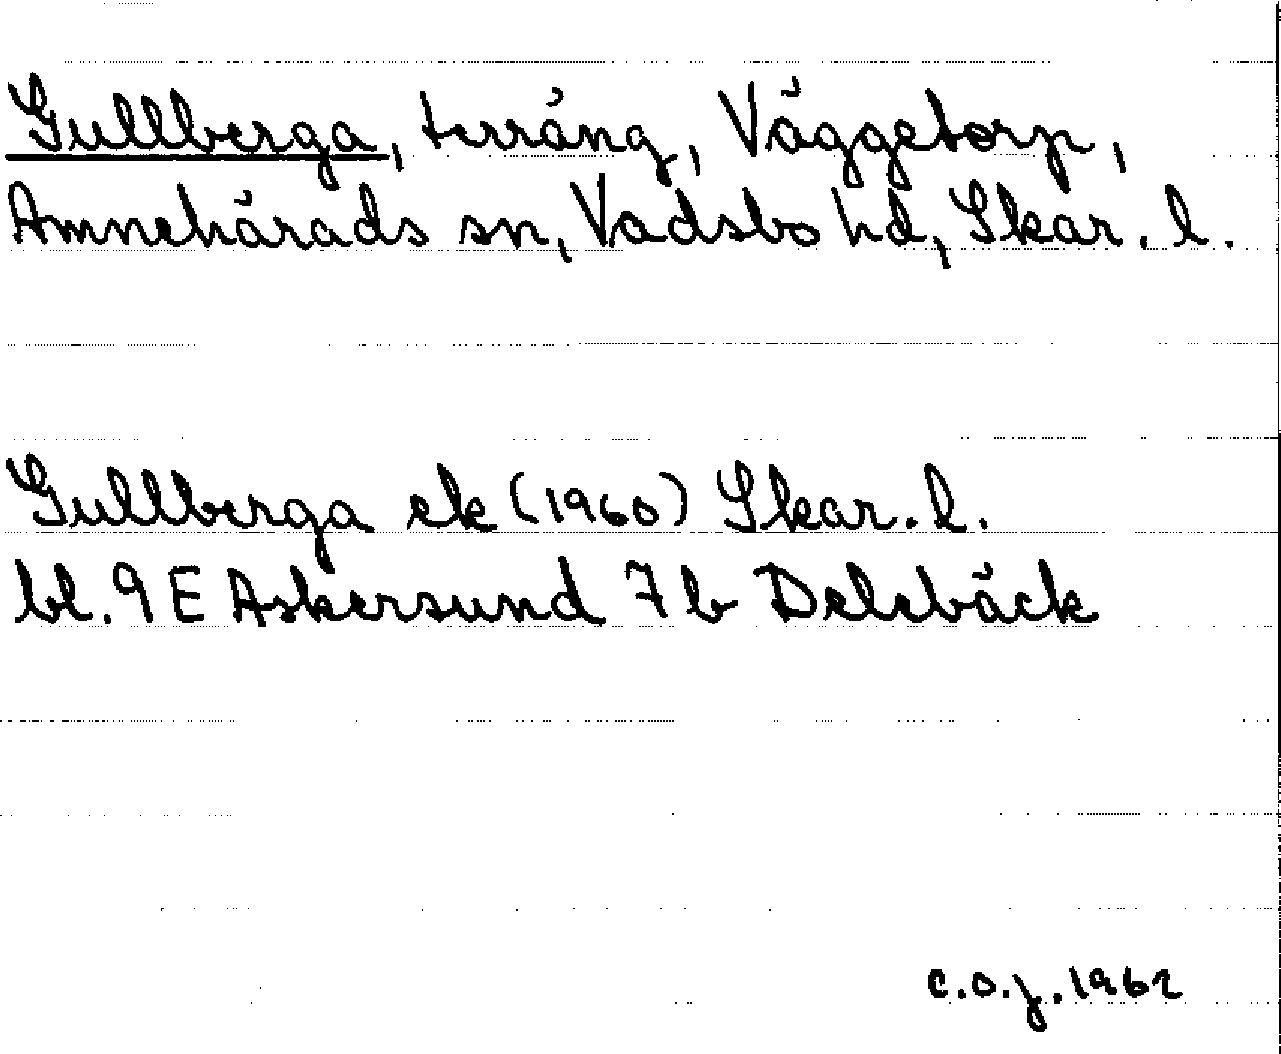 Gullberga, terräng, Väggetorp,
Amnehärads sn, Vadsbo hd, Skar. l.
Gullberga ek (1960) Skar. l.
bl. 9 E Askersund 7 b Delebäck
C.O.J. 1962